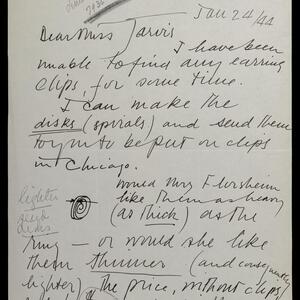 Jan 24/44
Dear Miss Jarvis
I have been
unable to find any earring
clips, for some time.
I can make the
disks (spirals) and send them
to you to be put on clips
in Chicago.
Would Mrs Florsheim
like them as heavy
(as thick) as the
ring — or would she like
them thinner (and consequently
lighter) the price, without clips
lighter
disks